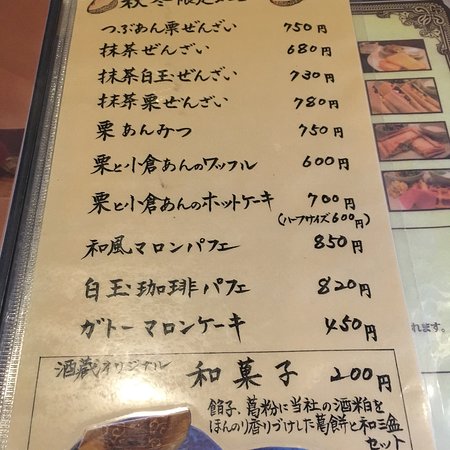 秋冬限定
つぶあん栗ぜんざい 750円
抹茶ぜんざい 680円
抹茶白玉ぜんざい 730円
抹茶栗ぜんざい 780円
栗あんみつ 750円
栗と小倉あんのワッフル 600円
栗と小倉あんのホットケーキ 700円
(ハーフサイズ600円)
和風マロンパフェ 850円
白玉珈琲パフェ 820円
ガトーマロンケーキ 450円
酒蔵オリジナル 和菓子 200円
餡子、葛粉に当社の酒粕を
ほんのり香りづけした葛餅と和三盆
セット
れます。